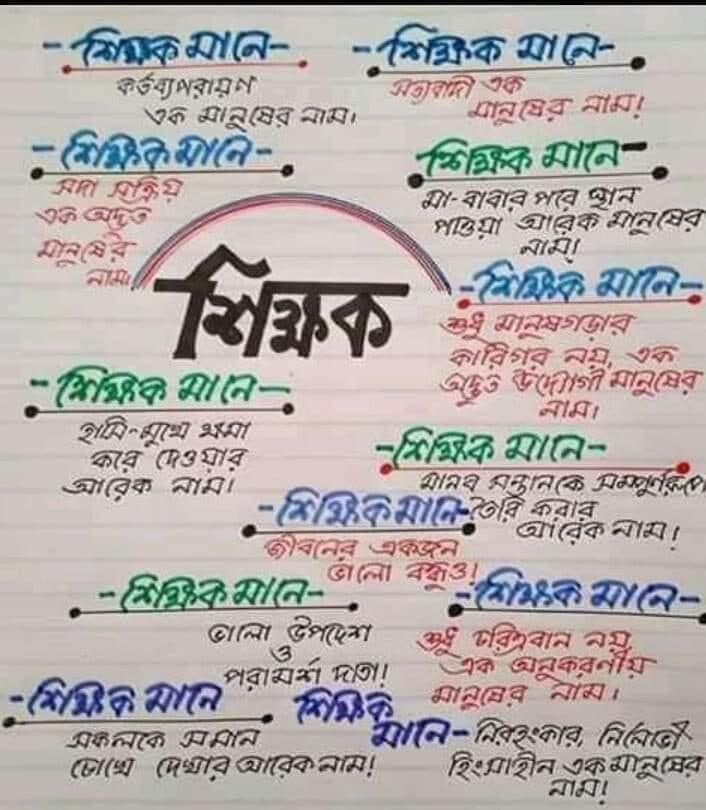 -শিক্ষক মানে-
কর্তব্যপরায়ণ
এক মানুষের নাম।
-শিক্ষক মানে-
সত্যবাদী এক
মানুষের নাম!
-শিক্ষক মানে-
সদা সক্রিয়
এক অদ্ভুত
মানুষের
নাম।
শিক্ষক মানে-
মা-বাবার পরে স্থান
পাওয়া আরেক মানুষের
নাম!
শিক্ষক
-শিক্ষক মানে-
শুধু মানুষগড়ার
কারিগর নয়, এক
অদ্ভুত উদ্যোগী মানুষের
নাম।
-শিক্ষক মানে-
হাসি-মুখে ক্ষমা
করে দেওয়ার
আরেক নাম।
-শিক্ষক মানে-
মানব সন্তানকে সম্পূর্ণরূপে
তৈরি করার
আরেক নাম!
-শিক্ষক মানে-
জীবনের একজন
ভালো বন্ধুও!
-শিক্ষক মানে-
ভালো উপদেশ
ও
পরামর্শ দাতা!
-শিক্ষক মানে-
শুধু চরিত্রবান নয়,
এক অনুকরণীয়
মানুষের নাম।
-শিক্ষক মানে
সকলকে সমান
চোখে দেখার আরেক নাম!
শিক্ষক
মানে- নিরহংকার, নির্লোভী
হিংসাহীন এক মানুষের
নাম!